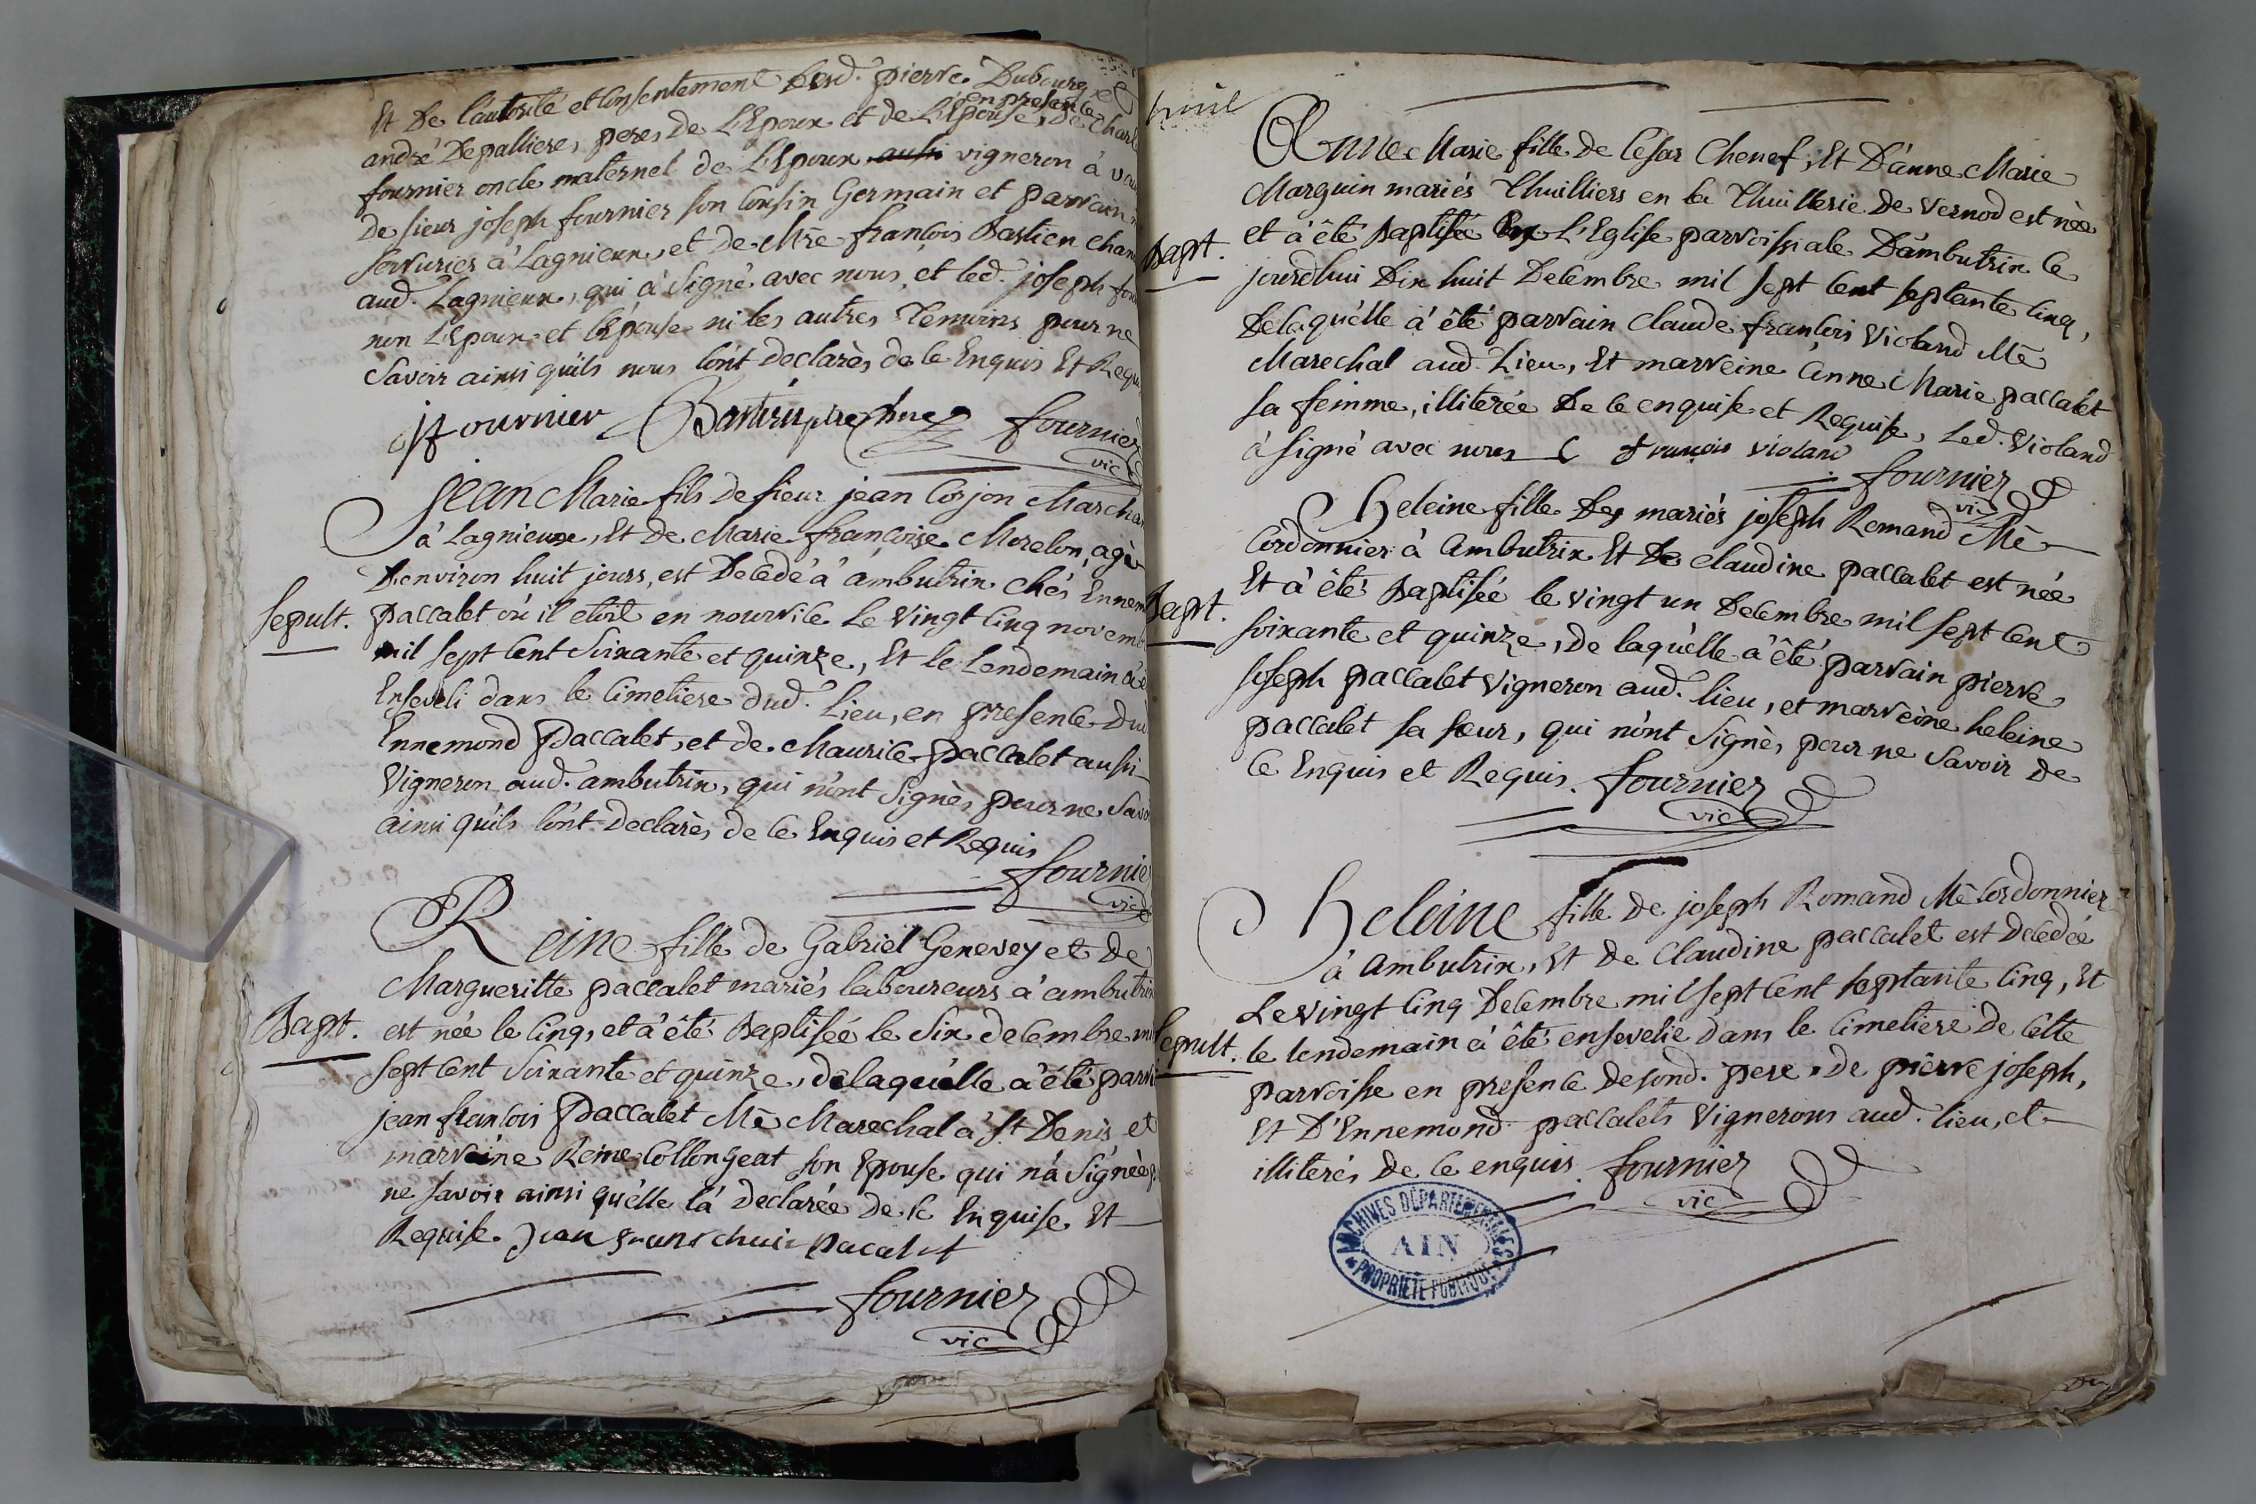 Et De l'autorité et Consentement Desd. pierre Dubourg et
andré Depalliere, peres de L'Epoux et de L'Epouse, en presence de Charl
fournier oncle maternel de L'Epoux aussi vigneron à vau
De sieur joseph fournier son Cousin Germain et parrain
serrurier à Lagnieux, et de Mre francois Bastien chan
aud. Lagnieux, qui à Signé avec nous, et led. joseph four
non L'Epoux et L'épouse ni les autres Temoins pour ne
Savoir ainsi qu'ils nous l'ont Declarès de ce Enquis Et Requis
jfournier Bastien ptre chne fournier
vic
jean Marie fils De sieur jean Corjon Marchan
à Lagnieux, Et De Marie francoise Morelon, agé
D'environ huit jours, est Decedé à ambutrin chés Ennem
Sepult. paccalet où il etoit en nourrice Le Vingt Cinq novemb
mil sept Cent Soixante et quinze, Et le Lendemain à é
Enseveli dans le Cimetiere dud. Lieu, en presence Dud
Ennemond paccalet, et de Maurice paccalet aussi
Vigneron aud. ambutrin, qui n'ont Signès pour ne Savoi
ainsi qu'ils l'ont Declarès de ce Enquis et Requis
fournier
vic
Reine fille de Gabriel Genevey et de
Margueritte paccalet mariés laboureurs à ambutrin
Bapt. est née le Cinq, et à été Baptisée le Six decembre mil
sept Cent Soixante et quinze, de laquélle a été parrain
jean francois paccalet Mè Marechal à St Denis et
marreine Reine Collongeat son Epouse qui n'à Signée p
ne savoir ainsi qu'elle l'à Declarée de ce Enquise Et
Requise. Jean franschuai pacalet
fournier
vic
Anne Marie fille de César Chenef, Et D'anne Marie
Marguin mariés Thuilliers en la Thuillerie De Vernod est née
Bapt. et à été Baptisée En L'Eglise parroissiale D'ambutrin Ce
jourd'hui Dix huit Decembre mil sept Cent septante Cinq,
De laquélle à été parrain Claude francois Violand Mè
Marechal aud. Lieu, Et marreine anne Marie paccalet
sa femme, illiterée De ce enquise et Requise, Led. Violand
à signé avec nous C francois violand
fournier
vic
Heleine fille Des mariés joseph Romand Mè
Cordonnier à Ambutrin Et De Claudine paccalet est née
Bapt. Et à été Baptisée le vingt un Decembre mil sept Cent
soixante et quinze, de laquélle à été parrain pierre
joseph paccalet Vigneron aud. lieu, et marreine heleine
paccalet sa sœur, qui n'ont Signés, pour ne Savoir De
Ce Enquis et Requis. fournier
vic
Heleine fille De joseph Romand Mè Cordonnier
à Ambutrin, Et De Claudine paccalet est Decedée
Le vingt Cinq Decembre mil sept Cent septante Cinq, Et
Sepult. le lendemain à été ensevelie dans le Cimetiere De Cette
parroisse en presence De sond. pere, De pierre joseph,
Et D'Ennemond paccalets Vignerons aud. lieu, et
illiterés De Ce enquis. fournier
vic
ARCHIVES DÉPARTEMENTALES
AIN
PROPRIÉTÉ PUBLIQUE